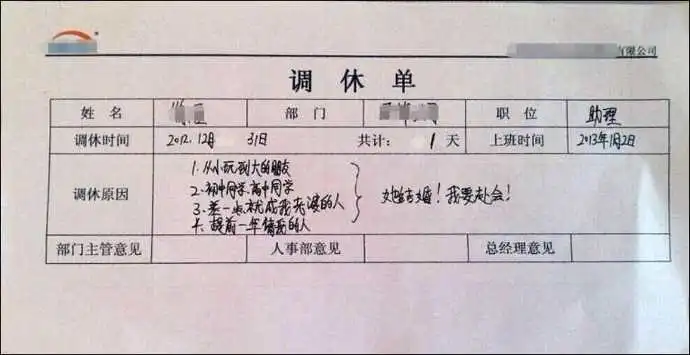 有限公司
调休单
姓名 部门 职位 助理
调休时间 2012.12月 31日 共计： 1天 上班时间 2013年1月2日
调休原因
1. 从小玩到大的朋友
2. 初中同学、高中同学
3. 差一点就成我老婆的人
4. 提前一年请我的人
她结婚！我要赴会！
部门主管意见 人事部意见 总经理意见